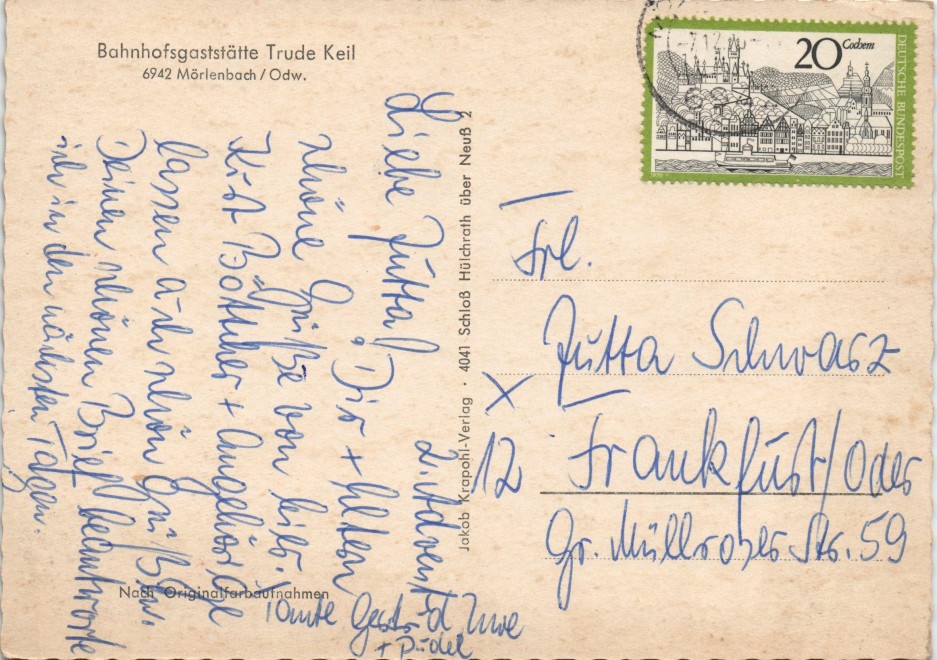 Bahnhofsgaststätte Trude Keil
6942 Mörlenbach / Odw.
2. Advent
Liebe Jutta! Dir + Eltern
schöne Grüße von hier.
Kurt Böttcher + Angehörige
lassen auch schön grüßen.
Deinen schönen Brief beantworte
ich in den nächsten Tagen.
Tante Gertrud Uwe
+ Pudel
Nach Originalfarbaufnahmen
Jakob Krapohl-Verlag · 4041 Schloß Hülchrath über Neuß 2
20 Cochem
DEUTSCHE BUNDESPOST
Frl.
Jutta Schwarz
X
12 Frankfurt/Oder
Gr. Müllroser Str. 59